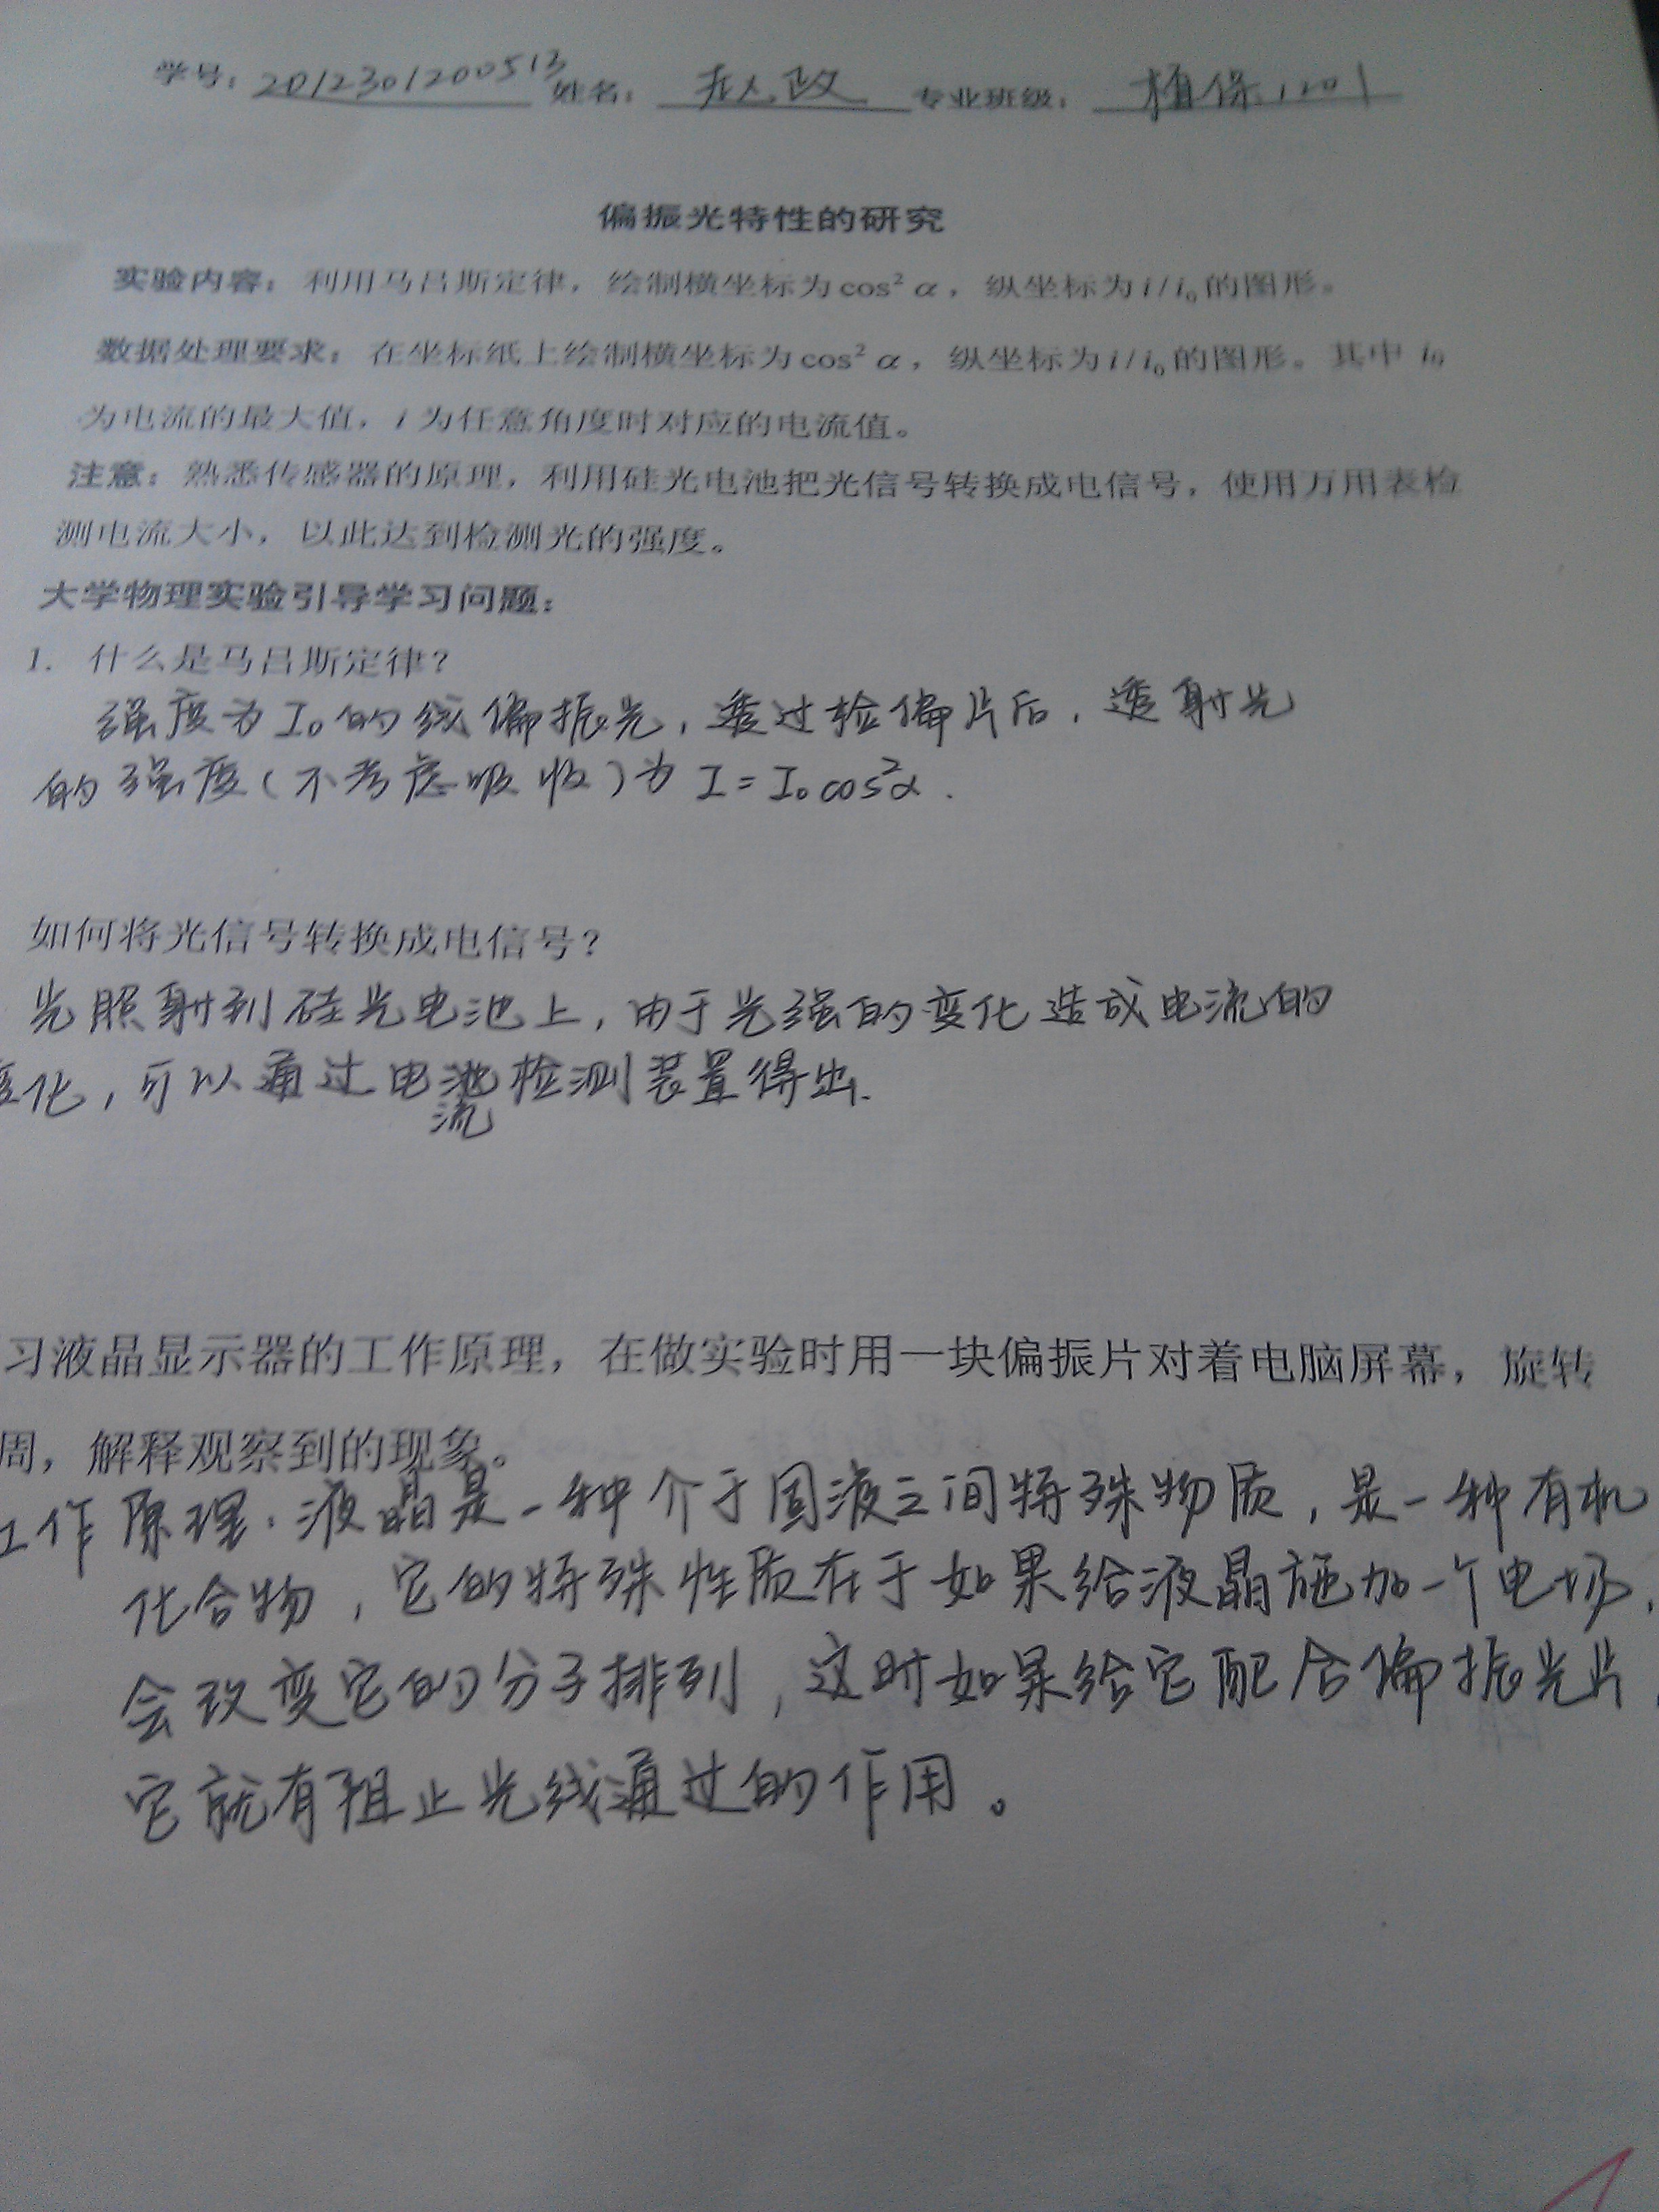 学号：2012301200513 姓名：赵政 专业班级：植保1201
偏振光特性的研究
实验内容：利用马吕斯定律，绘制横坐标为cos² α，纵坐标为i/i₀的图形。
数据处理要求：在坐标纸上绘制横坐标为cos² α，纵坐标为i/i₀的图形。其中 i₀
为电流的最大值，i 为任意角度时对应的电流值。
注意：熟悉传感器的原理，利用硅光电池把光信号转换成电信号，使用万用表检
测电流大小，以此达到检测光的强度。
大学物理实验引导学习问题：
1. 什么是马吕斯定律？
强度为I₀的线偏振光，透过检偏片后，透射光
的强度（不考虑吸收）为 I=I₀cos²α.
如何将光信号转换成电信号？
光照射到硅光电池上，由于光强的变化造成电流的
变化，可以通过电流检测装置得出.
习液晶显示器的工作原理，在做实验时用一块偏振片对着电脑屏幕，旋转
周，解释观察到的现象。
工作原理：液晶是一种介于固液之间特殊物质，是一种有机
化合物，它的特殊性质在于如果给液晶施加一个电场，
会改变它的分子排列，这时如果给它配合偏振光片，
它就有阻止光线通过的作用。